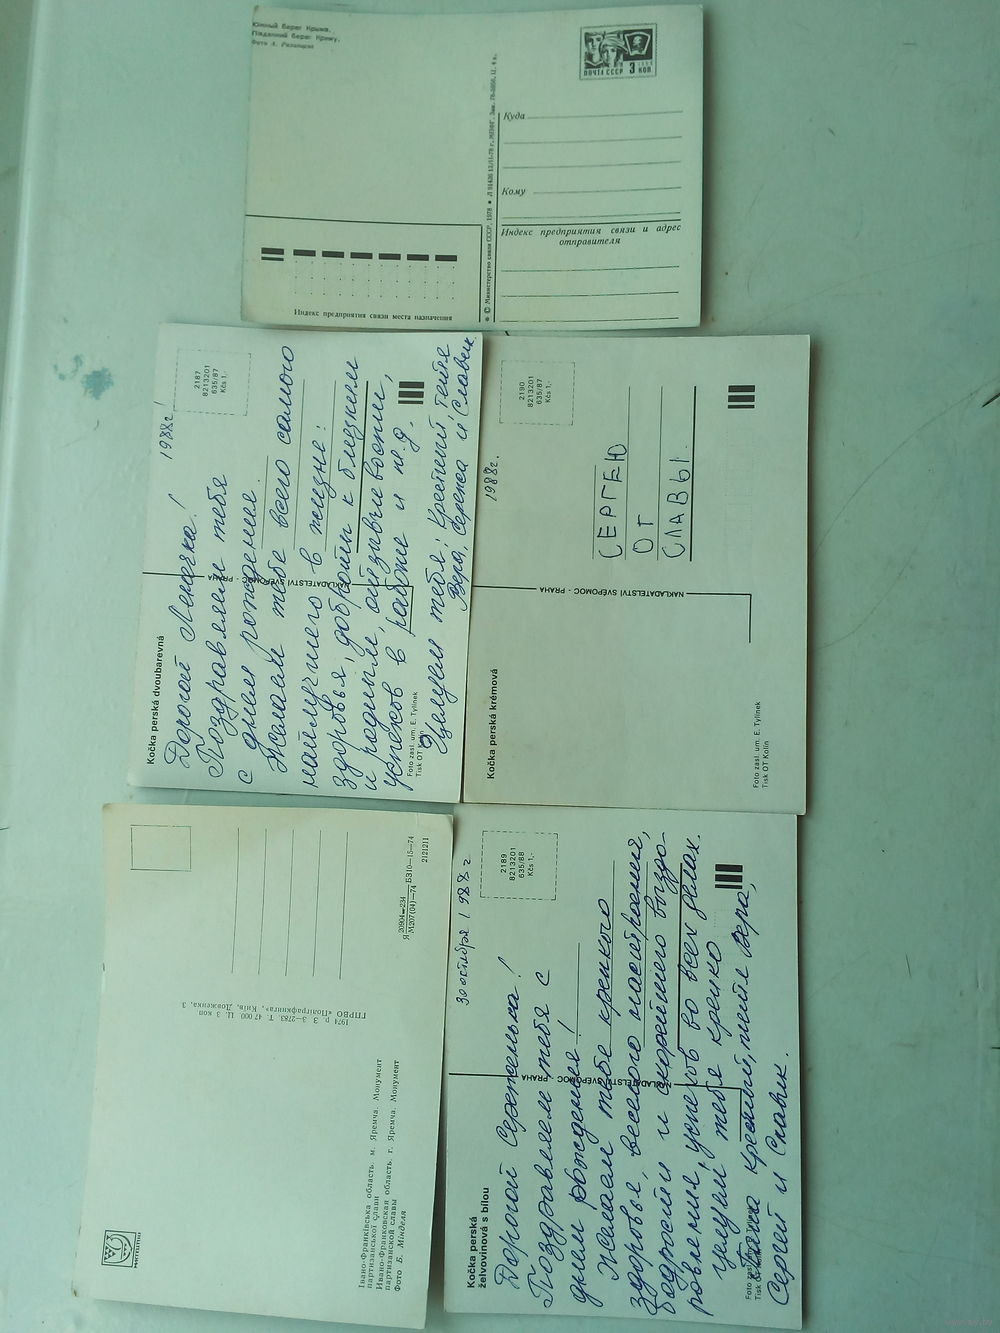 Южный берег Крыма.
Південний берег Криму.
Фото А. Рязанцев
ПОЧТА СССР 3 КОП
Куда
Кому
Индекс предприятия связи и адрес
отправителя
Индекс предприятия связи места назначения
© Министерство связи СССР, 1978
1988г.
2187
8213201
635/87
Kčs 1,-
Kočka perská dvoubarevná
Дорогой Леночка!
Поздравляем тебя
с днем рождения.
Желаем тебе всего самого
наилучшего в жизни:
здоровья, доброты к близким
и родным, отзывчивости,
успехов в работе и т.д.
Целуем тебя: Крестный, тетя
Вера, Сережа и Славик
NAKLADATELSTVÍ SVÉPOMOC - PRAHA
Foto zasl. um. E. Tylínek
Tisk OT Kolín
1988г.
2190
8213201
635/87
Kčs 1,-
Kočka perská krémová
СЕРГЕЮ
ОТ
СЛАВЫ.
NAKLADATELSTVÍ SVÉPOMOC - PRAHA
Foto zasl. um. E. Tylínek
Tisk OT Kolín
Я 20904—234
М207(04)—74 БЗ10—15—74
2121211
1974 р. З. 3—2783. Т. 47 000. Ц. 3 коп
ГПРВО «Поліграфкнига», Київ, Довженка, 3
МИСТЕЦТВО
Івано-Франківська область. м. Яремча. Монумент
партизанської слави
Ивано-Франковская область. г. Яремча. Монумент
партизанской славы
Фото Б. Мінделя
30 октября 1988 г
2189
8213201
635/88
Kčs 1,-
Kočka perská
želvovinová s bílou
Дорогой Сереженька!
Поздравляем тебя с
днем рождения!
Желаем тебе крепкого
здоровья, веселого настроения,
бодрости и скорейшего выздо-
ровления, успехов во всех делах.
Целуем тебя крепко
Крестный, тетя Вера,
Сергей и Славик.
NAKLADATELSTVÍ SVÉPOMOC - PRAHA
Foto zasl. um. E. Tylínek
Tisk OT Kolín